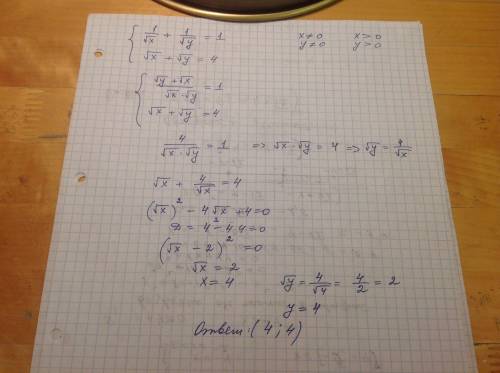 { 1/√x + 1/√y = 1 x≠0 x>0
√x + √y = 4 y≠0 y>0
{ (√y + √x)/(√x · √y) = 1
√x + √y = 4
4/(√x · √y) = 1 => √x · √y = 4 => √y = 4/√x
√x + 4/√x = 4
(√x)² - 4√x + 4 = 0
D = 4² - 4·4 = 0
(√x - 2)² = 0
√x = 2
x = 4 √y = 4/√4 = 4/2 = 2
y = 4
Ответ: (4; 4)